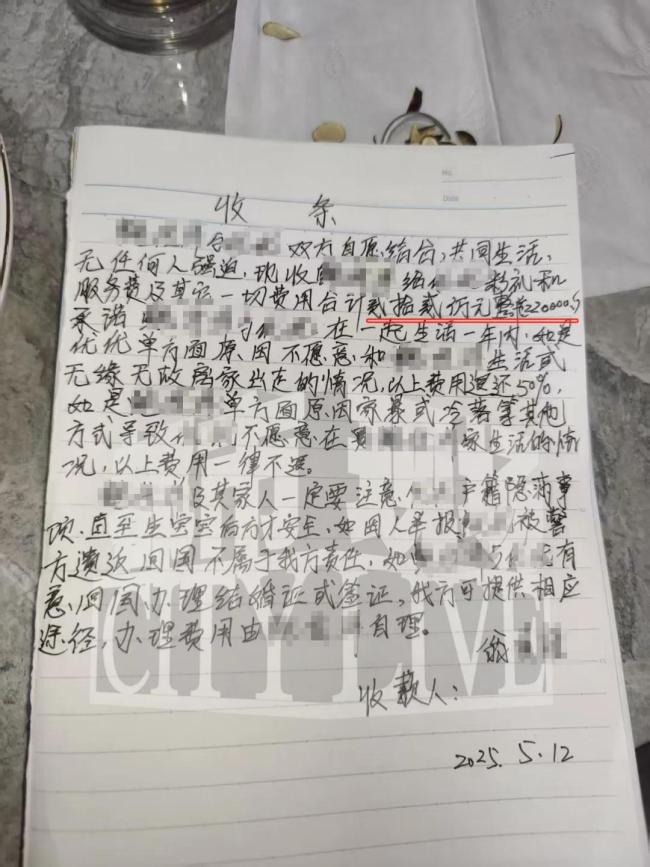 No.
Date
收 条
双方自愿结合,共同生活,
无任何人强迫,现收 给 彩礼和
服务费及其它一切费用合计贰拾贰万元整¥220000
承诺 与 在一起生活一年内,如是
单方面原因不愿意和 生活或
无缘无故离家出走的情况,以上费用退还50%,
如是 单方面原因家暴或冷落等其他
方式导致 不愿意在 家生活的情
况,以上费用一律不退。
及其家人一定要注意 户籍隐满事
项,直至生宝宝后方才安全,如因人举报 被警
方遣返回国不属于我方责任,如 与 有
意回国办理结婚证或签证,我方可提供相应
途径,办理费用由 自理。
翁
收款人:
2025. 5. 12
CITY LIVE